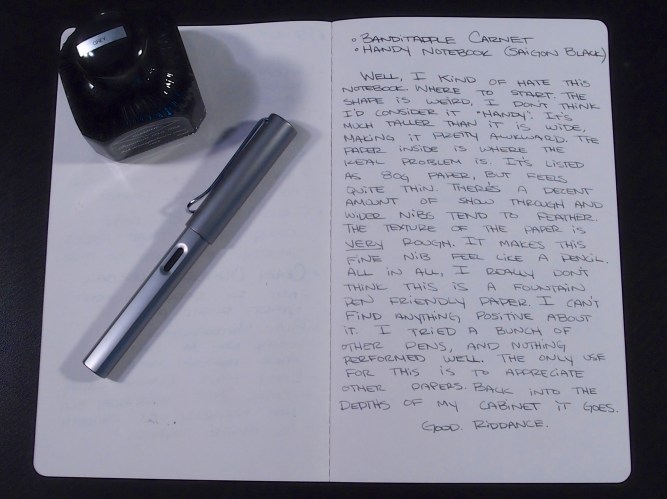 • BANDITAPPLE CARNET
• HANDY NOTEBOOK (SAIGON BLACK)
WELL, I KIND OF HATE THIS
NOTEBOOK. WHERE TO START. THE
SHAPE IS WEIRD, I DON'T THINK
I'D CONSIDER IT "HANDY". IT'S
MUCH TALLER THAN IT IS WIDE,
MAKING IT PRETTY AWKWARD. THE
PAPER INSIDE IS WHERE THE
REAL PROBLEM IS. IT'S LISTED
AS 80G PAPER, BUT FEELS
QUITE THIN. THERE'S A DECENT
AMOUNT OF SHOW THROUGH AND
WIDER NIBS TEND TO FEATHER.
THE TEXTURE OF THE PAPER IS
VERY ROUGH. IT MAKES THIS
FINE NIB FEEL LIKE A PENCIL.
ALL IN ALL, I REALLY DON'T
THINK THIS IS A FOUNTAIN
PEN FRIENDLY PAPER. I CAN'T
FIND ANYTHING POSITIVE ABOUT
IT. I TRIED A BUNCH OF
OTHER PENS, AND NOTHING
PERFORMED WELL. THE ONLY USE
FOR THIS IS TO APPRECIATE
OTHER PAPERS. BACK INTO THE
DEPTHS OF MY CABINET IT GOES.
GOOD. RIDDANCE.